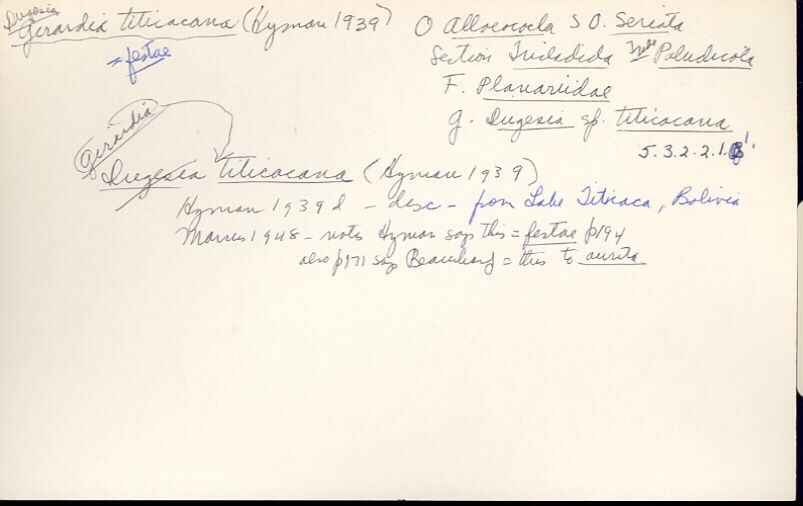 Dugesia
Girardia titicacana (Hyman 1939)
= festae
O Alloeocoela S O. Seriata
Section Tricladida Tribe Paludicola
F. Planariidae
g. Dugesia sp. titicacana
5.3.2.2.1.
Girardia
Dugesia titicacana (Hyman 1939)
Hyman 1939 d - desc - from Lake Titicaca, Bolivia
Marcus 1948 - notes Hyman says this = festae p194
also p171 says Beauchamp = this to aurita